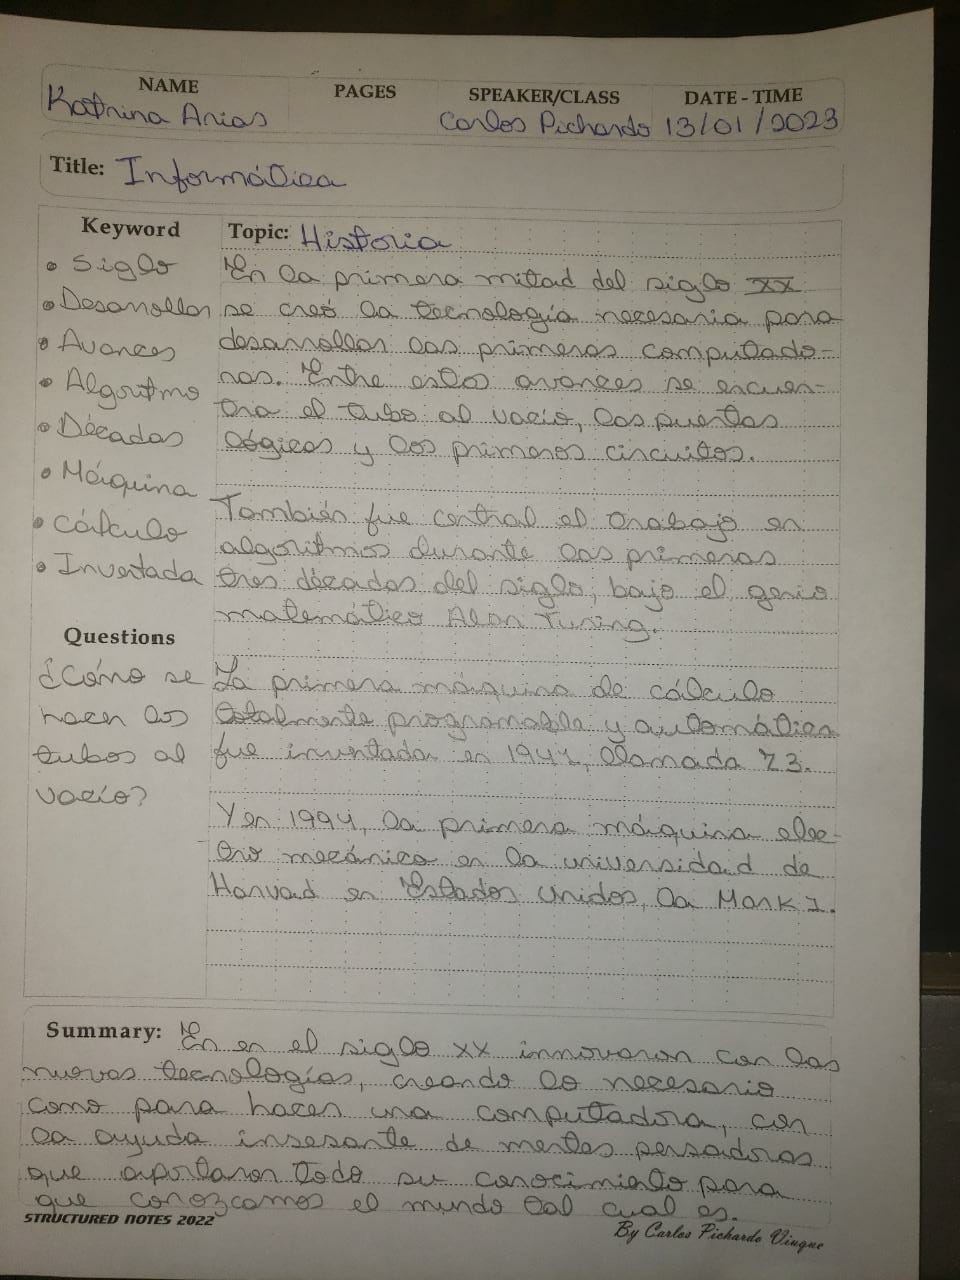 NAME PAGES SPEAKER/CLASS DATE - TIME
Katrina Arias Carlos Pichardo 13/01/2023
Title: Informática
Keyword
• Siglo
• Desarrollar
• Avances
• Algoritmo
• Décadas
• Máquina
• cálculo
• Inventada
Questions
¿Cómo se
hacen los
tubos al
vacío?
Topic: Historia
En la primera mitad del siglo XX
se creó la tecnología necesaria para
desarrollar las primeras computado-
ras. Entre estos avances se encuen-
tra el tubo al vacío, las puertas
lógicas y los primeros circuitos.
También fue central el trabajo en
algoritmos durante las primeras
tres décadas del siglo, bajo el genio
matemático Alan Turing.
La primera máquina de cálculo
totalmente programable y automática
fue inventada en 1941, llamada Z3.
Y en 1994, la primera máquina elec-
tro mecánica en la universidad de
Harvad en Estados Unidos, la Mark I.
Summary: En en el siglo XX innovaron con las
nuevas tecnologías, creando lo necesario
como para hacer una computadora, con
la ayuda insesante de mentes pensadoras
que aportaron todo su conocimiento para
que conozcamos el mundo tal cual es.
STRUCTURED NOTES 2022
By Carlos Pichardo Viuque